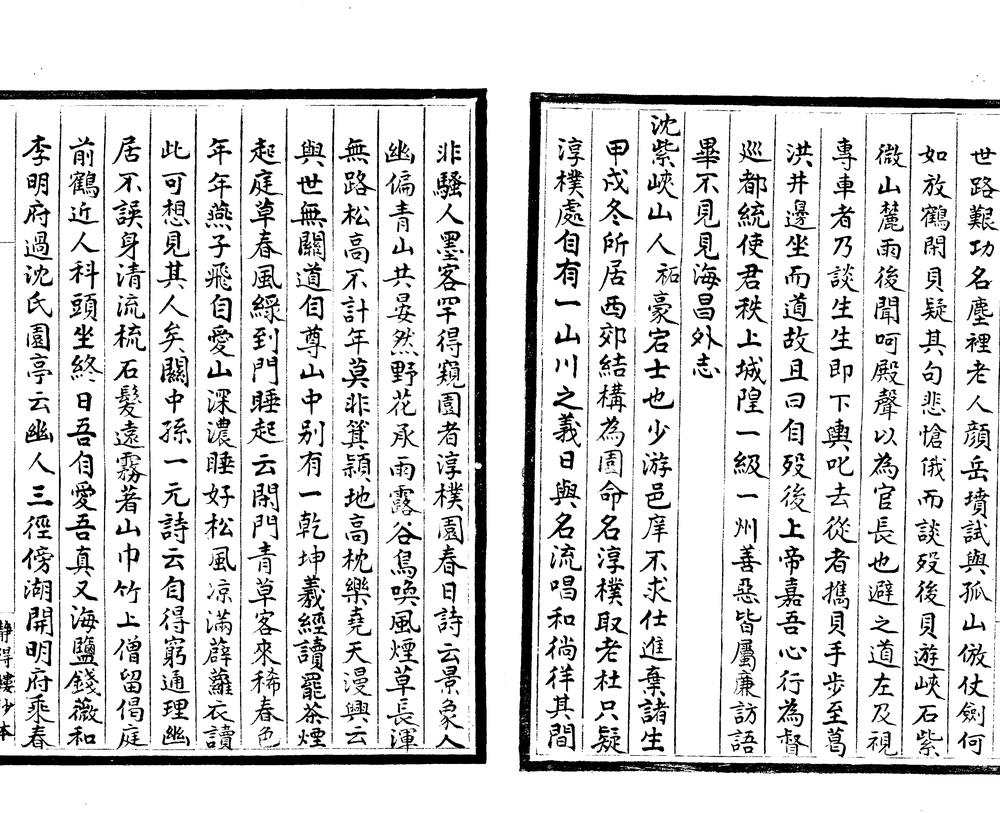 世路艱功名塵裡老人顔岳墳試與孤山倣仗劍何
如放鶴閑貝疑其句悲愴俄而談歿後貝遊峽石紫
微山麓雨後聞呵殿聲以為官長也避之道左及視
專車者乃談生生即下輿叱去從者攜貝手步至葛
洪井邊坐而道故且曰自歿後上帝嘉吾心行為督
巡都統使君秩上城隍一級一州善惡皆屬廉訪語
畢不見見海昌外志
沈紫峽山人祏豪宕士也少游邑庠不求仕進棄諸生
甲戌冬所居西郊結構為園命名淳樸取老杜只疑
淳樸處自有一山川之義日與名流唱和徜徉其間
非騷人墨客罕得窺園者淳樸園春日詩云景象人
幽偏青山共晏然野花承雨露谷鳥喚風煙草長渾
無路松高不計年莫非箕潁地高枕樂堯天漫興云
與世無關道自尊山中别有一乾坤羲經讀罷茶煙
起庭草春風綠到門睡起云閑門青草客來稀春色
年年燕子飛自愛山深濃睡好松風凉滿薜蘿衣讀
此可想見其人矣關中孫一元詩云自得窮通理幽
居不誤身清流梳石髮遠霧著山巾竹上僧留偈庭
前鶴近人科頭坐終日吾自愛吾真又海鹽錢薇和
李明府過沈氏園亭云幽人三徑傍湖開明府乘春
靜得樓抄本